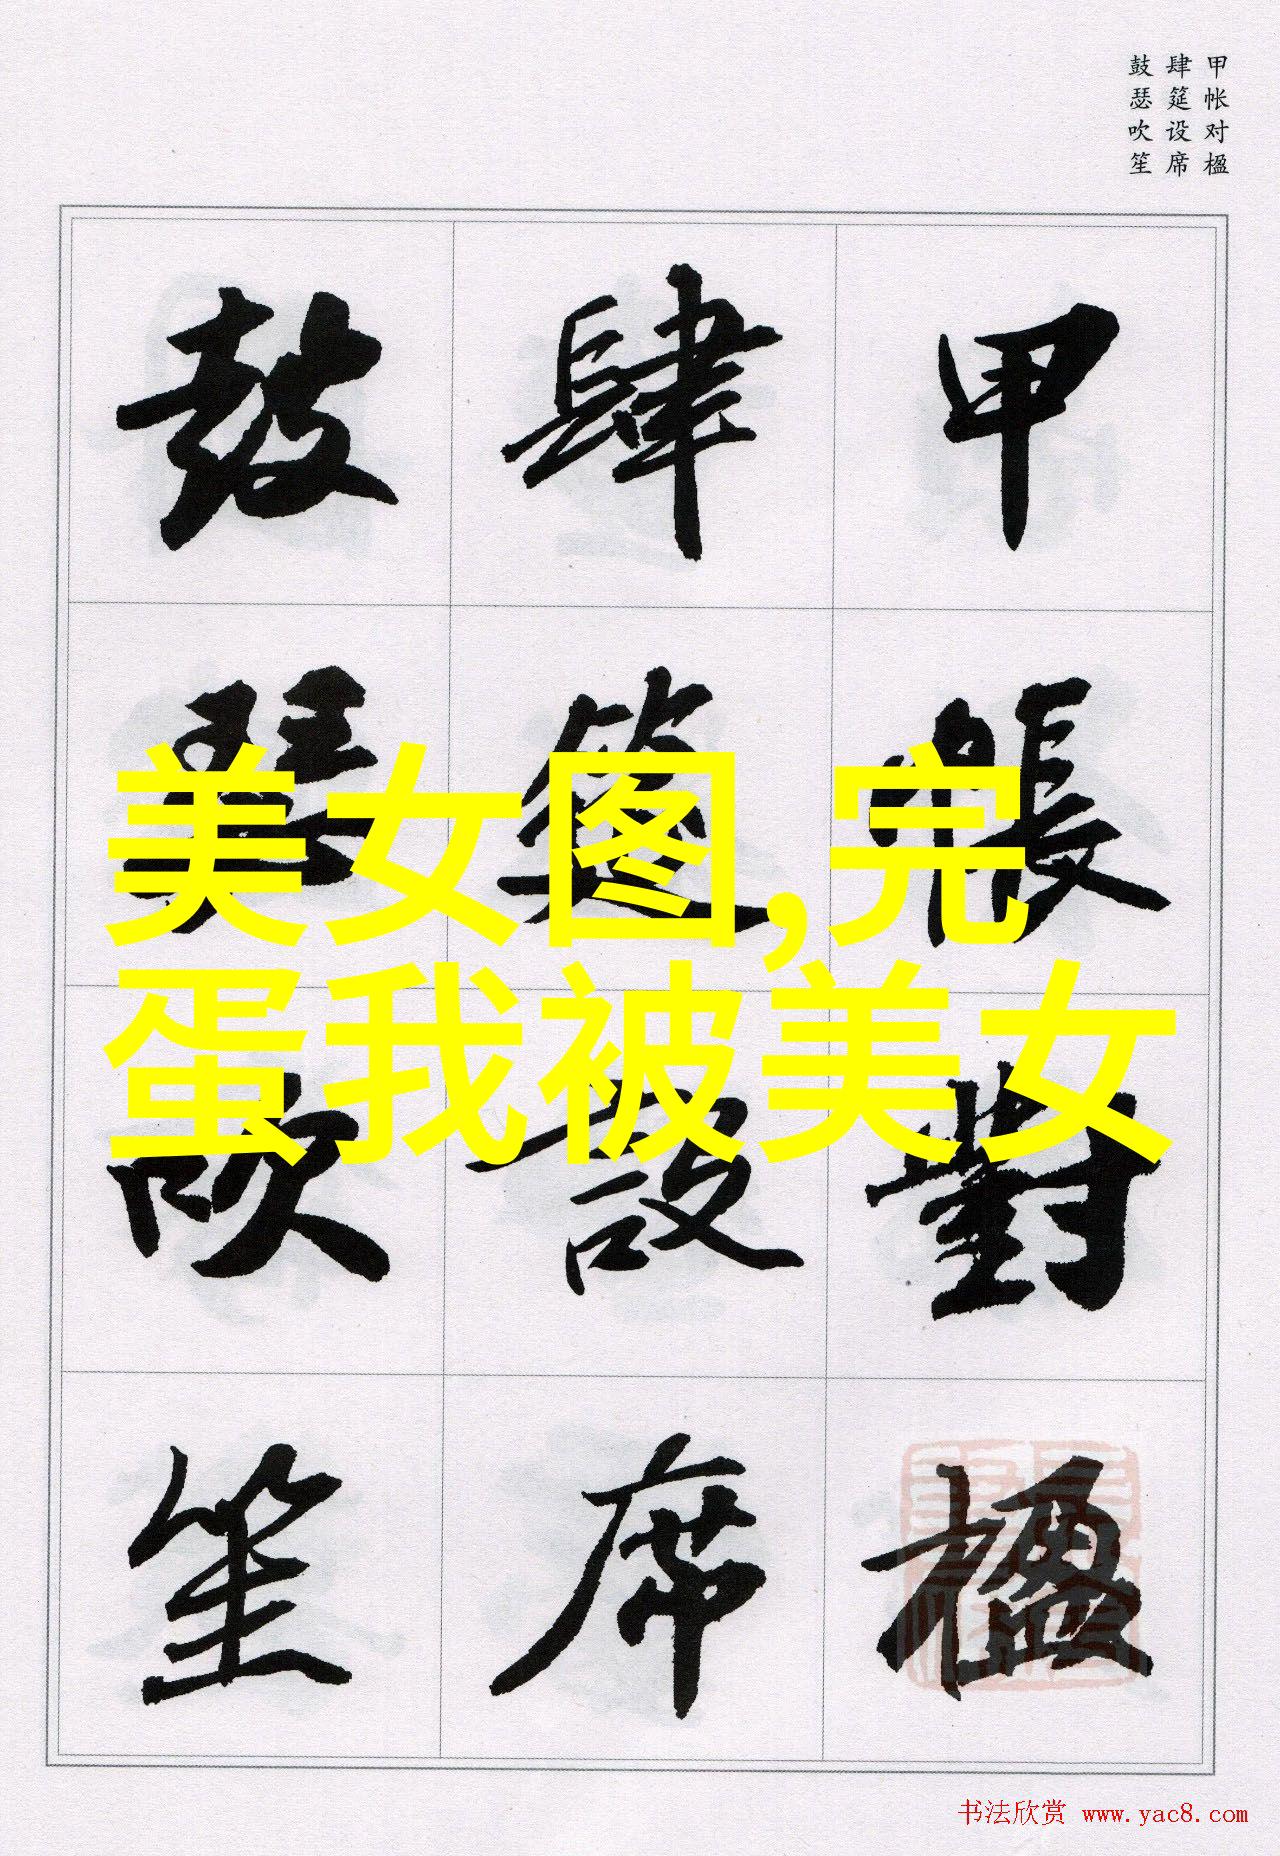 甲帐对楹
肆筵设席
鼓瑟吹笙
甲帳對楹
肆筵設席
鼓瑟吹笙
美女图,完
蛋我被美女
书法欣赏 www.yac8.com